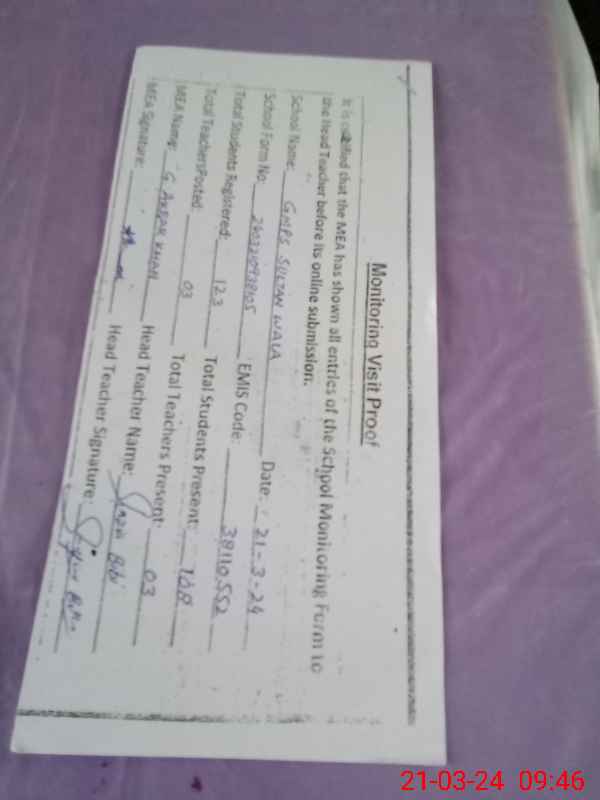 Monitoring Visit Proof
It is certified that the MEA has shown all entries of the School Monitoring Form to
the Head Teacher before its online submission.
School Name: GMPS SULTAN WALA Date: 21-3-24
School Form No: EMIS Code: 38110552
Total Students Registered: 123 Total Students Present: 108
Total TeachersPosted: 03 Total Teachers Present: 03
MEA Name: G AKBAR KHAN Head Teacher Name: Bibi
MEA Signature: Head Teacher Signature:
21-03-24 09:46